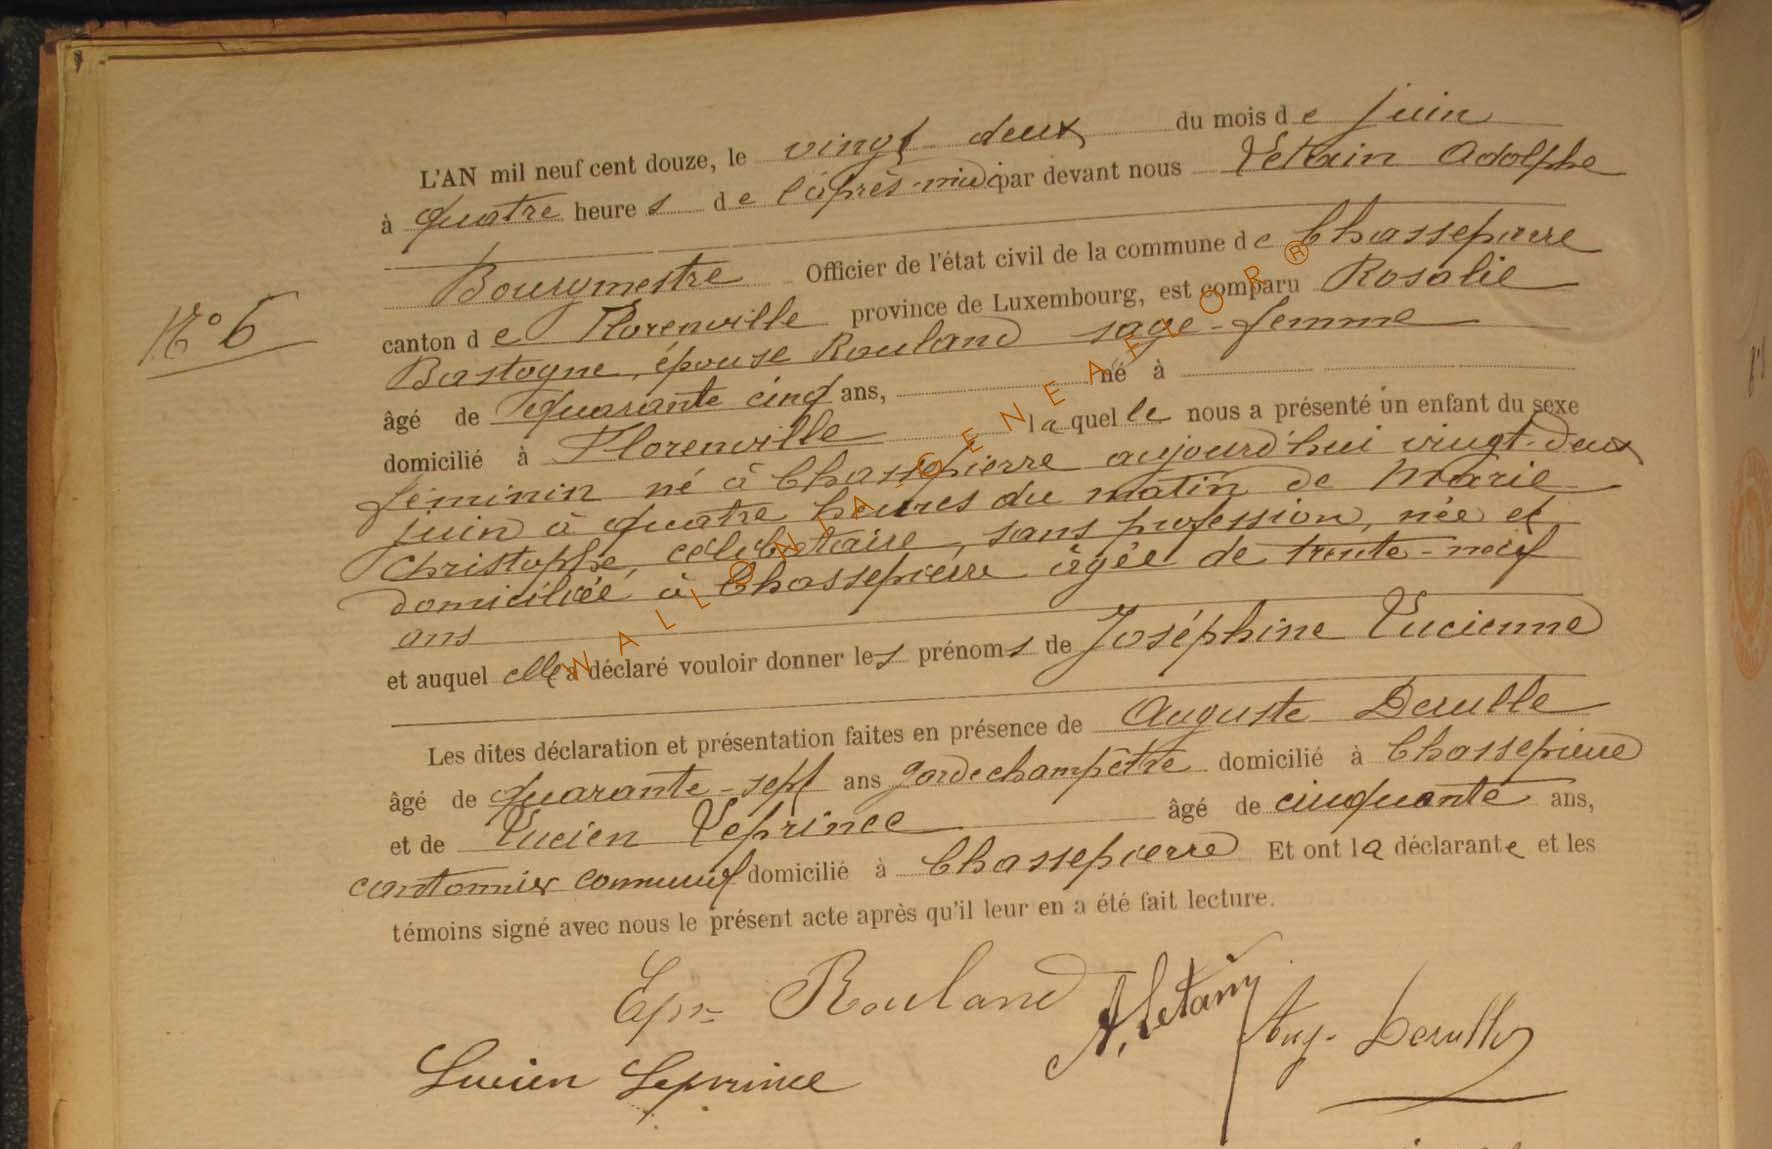 L'AN mil neuf cent douze, le vingt deux du mois de juin
à quatre heures de l'après-midi par devant nous Letain Adolphe
Bourgmestre Officier de l'état civil de la commune de Chassepierre
N° 6
canton de Florenville province de Luxembourg, est comparu Rosalie
Bastogne, épouse Rouland sage-femme
âgé de quarante cinq ans, né à
domicilié à Florenville laquelle nous a présenté un enfant du sexe
féminin né à Chassepierre aujourd'hui vingt-deux
juin à quatre heures du matin de Marie
Christophe, célibataire, sans profession, née et
domiciliée à Chassepierre âgée de trente-neuf
ans
et auquel elle a déclaré vouloir donner les prénoms de Joséphine Lucienne
Les dites déclaration et présentation faites en présence de Auguste Derulle
âgé de quarante-sept ans garde champêtre domicilié à Chassepierre
et de Lucien Leprince âgé de cinquante ans,
cantonnier communal domicilié à Chassepierre Et ont la déclarante et les
témoins signé avec nous le présent acte après qu'il leur en a été fait lecture.
Rouland A. Letain Aug. Derulle
Lucien Leprince
WALLONIA GENEAFLOR ®